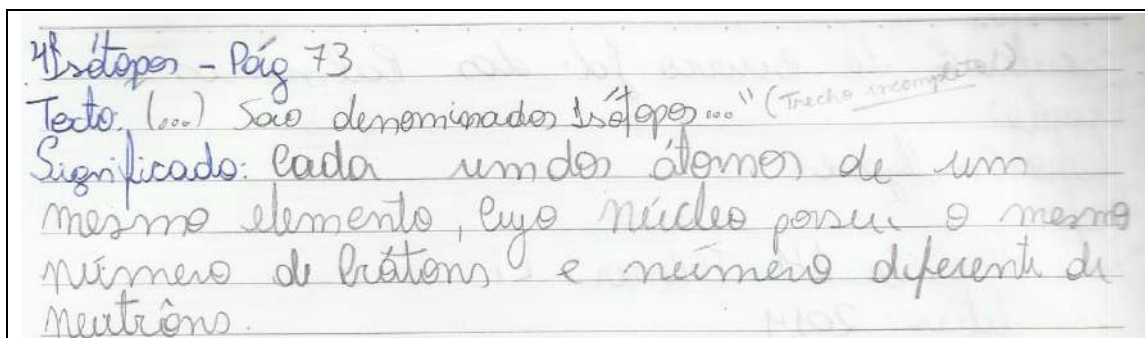 4º Isótopos - Pág 73
Texto: (...) São denominados Isótopos..." (Trecho incompleto)
Significado: Cada um dos átomos de um
mesmo elemento, cujo núcleo possui o mesmo
número de Prótons e número diferente de
neutrôns.